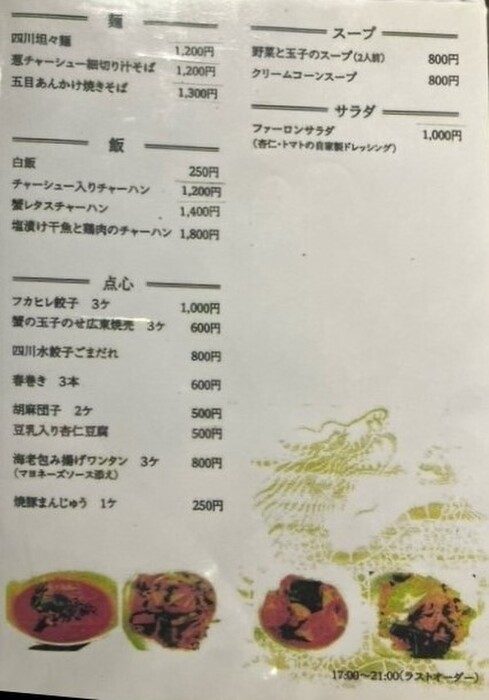 麺
四川坦々麺 1,200円
葱チャーシュー細切り汁そば 1,200円
五目あんかけ焼きそば 1,300円
飯
白飯 250円
チャーシュー入りチャーハン 1,200円
蟹レタスチャーハン 1,400円
塩漬け干魚と鶏肉のチャーハン 1,800円
点心
フカヒレ餃子 3ケ 1,000円
蟹の玉子のせ広東焼売 3ケ 600円
四川水餃子ごまだれ 800円
春巻き 3本 600円
胡麻団子 2ケ 500円
豆乳入り杏仁豆腐 500円
海老包み揚げワンタン 3ケ 800円
(マヨネーズソース添え)
焼豚まんじゅう 1ケ 250円
スープ
野菜と玉子のスープ(2人前) 800円
クリームコーンスープ 800円
サラダ
ファーロンサラダ 1,000円
(杏仁・トマトの自家製ドレッシング)
17:00～21:00(ラストオーダー)